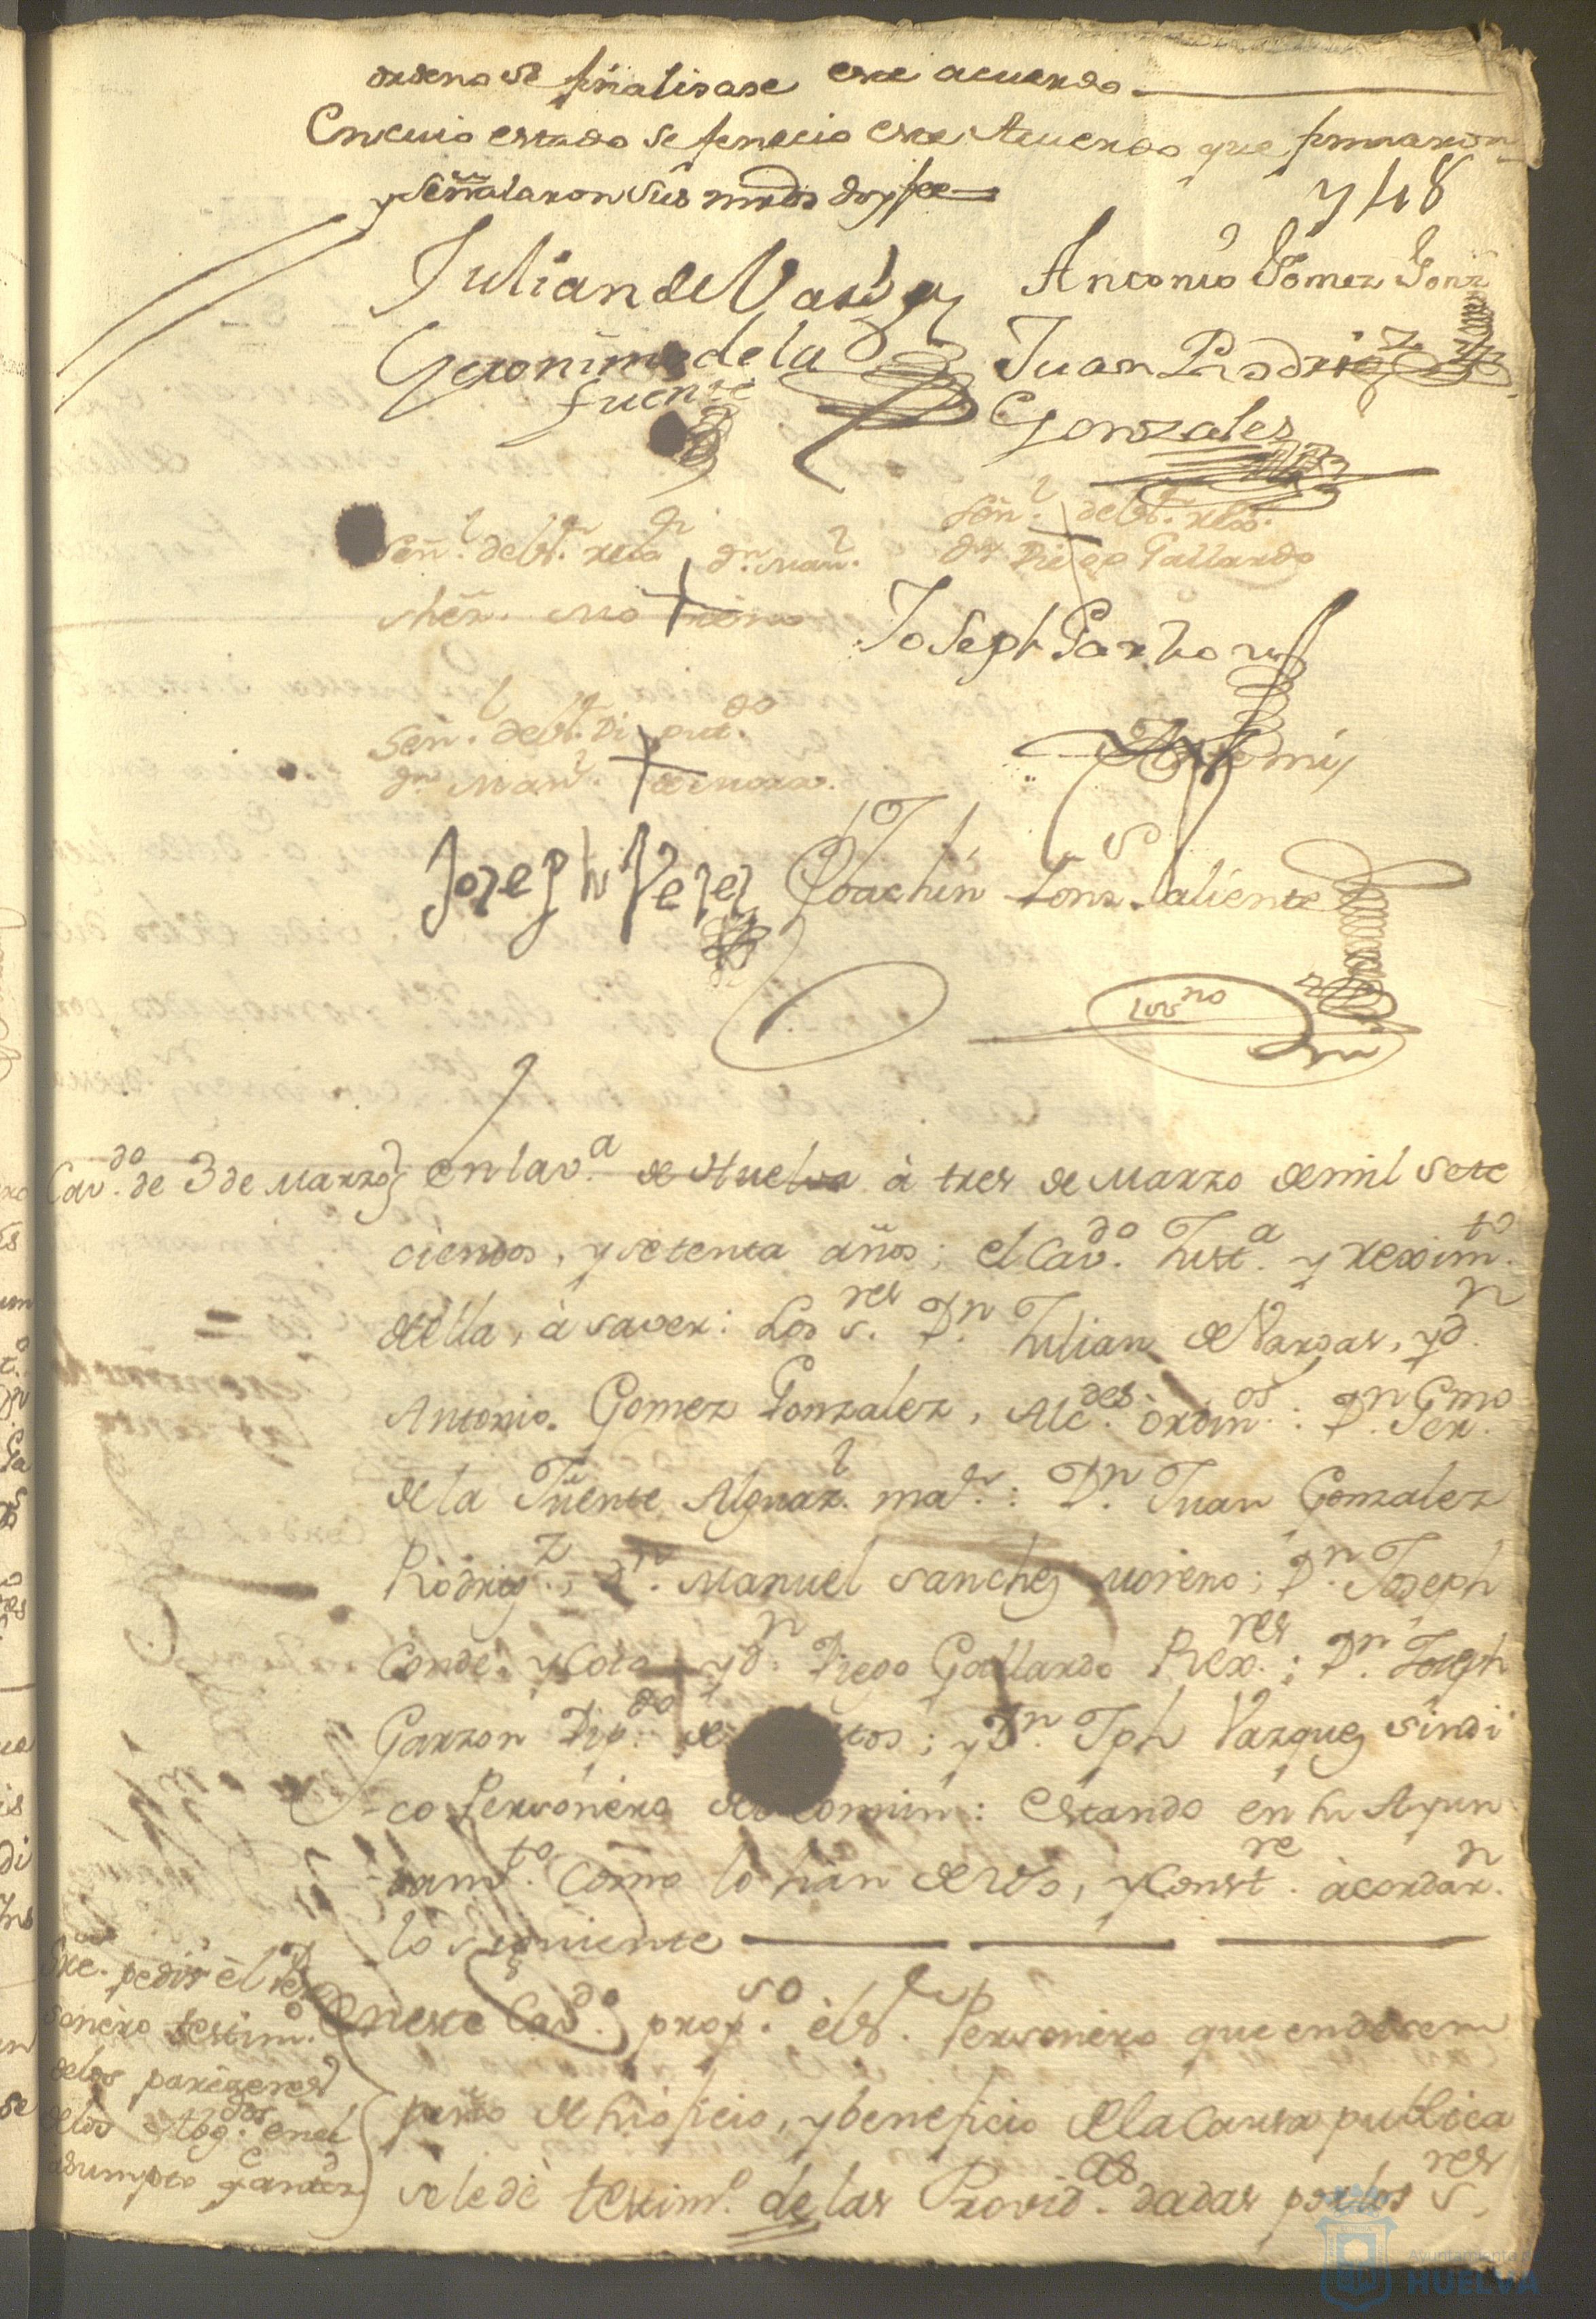 ordeno se finalisase este acuerdo
En cuio estado se fenecio este Acuerdo que firmaron
y señalaron sus mrds doy fee
Julian de Vargas Antonio Gomez Gonz
Geronimo de la Juan Rodrigz
fuente Gonzales
Señ.l del Sr. rexor Dn. Man.l Señ.l del Sr. rexor.
Sñez. Moreno Dn Diego Gallardo
Joseph Garzon
Señ.l del Sr. Diputdo
Dn Manl. de Mora. Ante mi
Joseph Perez Joachin Gonz. Valiente
Cavdo. de 3 de Marzo en la va. de Huelva à tres de Marzo de mil sete
cientos, y setenta años; el Cavdo. Justa. y reximto.
de ella, à saver: Los sres. Dn. Julian de Vargas, y dn.
Antonio Gomez Gonzalez, Alcdes. ordinos.: Dn. Germo.
de la Fuente Alguazl. mar.: Dn. Juan Gonzalez
Rodrigz., Dn. Manuel Sanchez Moreno; Dn. Joseph
Conde, y Coto y dn. Diego Gallardo Rexres.; Dn. Joseph
Garzon Dipdo. de tos; y Dn. Jph Vazquez sindi
co Personero del comun: Estando en su Ayun
tamto. como lo han de uso, y Constre. acordarn.
lo siguiente
pedir el Per
sonero testimo.
de los pareceres
de los Abogdos. en el
asumpto
En este Cavdo. propso. el Sr. Personero que en desem
peño de su oficio, y beneficio de la Causa publica
se le dè testimo. de las Providas. dadas por los sres.
Ayuntamiento de
HUELVA